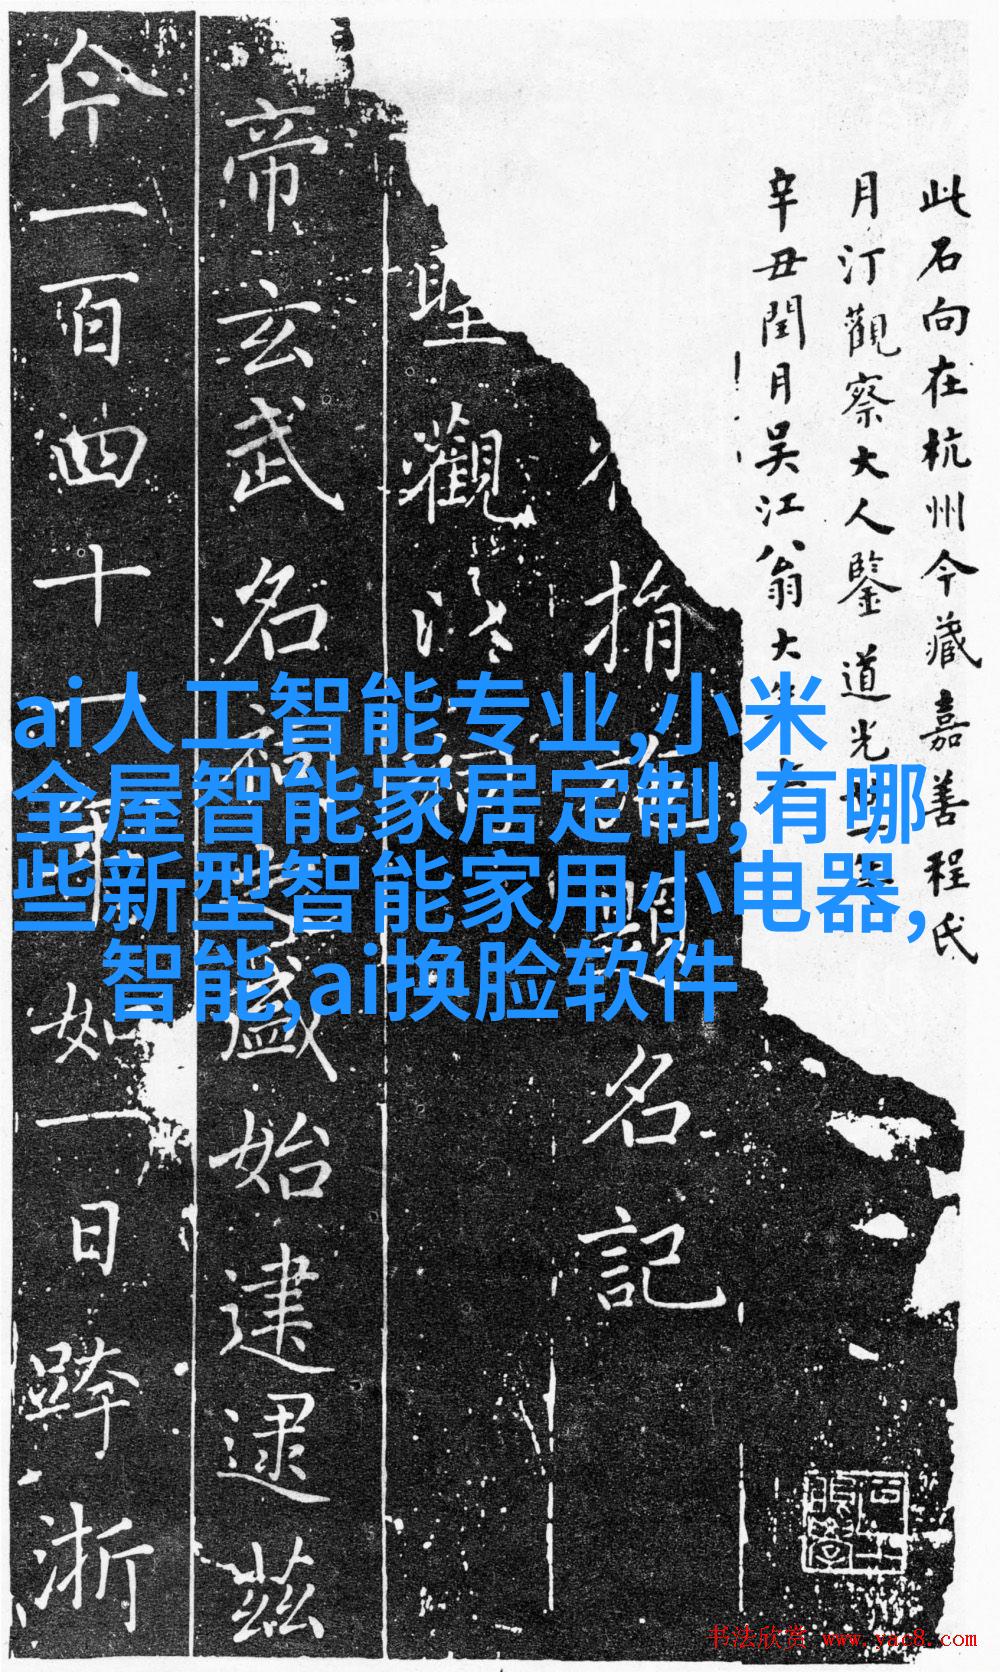 此石向在杭州今藏嘉善程氏
月汀觀察大人鑒道光
辛丑閏月吳江翁大
捐
名記
觀
帝玄武名
盛始建逮茲
仐一百四十
如一日
浙
ai人工智能专业,小米
全屋智能家居定制,有哪
些新型智能家用小电器,
智能,ai换脸软件
书法欣赏 www.yac8.com